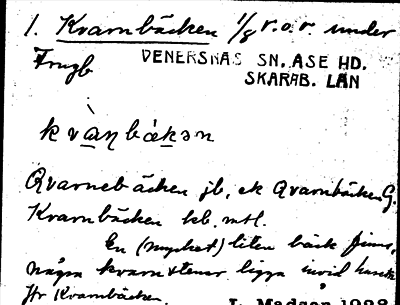 1. Kvarnbäcken 1/8 r.o.r. under
Frugb
VENERSNÄS SN. ÅSE HD.
SKARAB. LÄN
kvàṇbäkən
Qvarnebäcken jb, ek Qvarnbäcken G.
Kvarnbäcken kb. mtl.
En (mycket) liten bäck finns,
några kvarnstenar ligga invid
Jfr Kvarnbäcken.